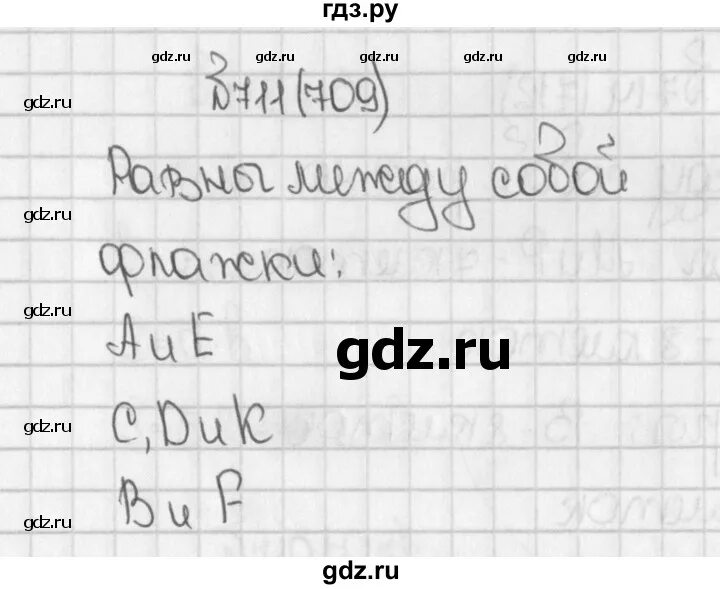 гдз.ру
gdz.ru gdz.ru gdz.ru gdz.ru
№711(709)
gdz.ru
Равны между собой
gdz.ru
флажки:
gdz.ru
А и Е
gdz.ru
C, D и K
gdz.ru
В и F
gdz.ru
gdz.ru